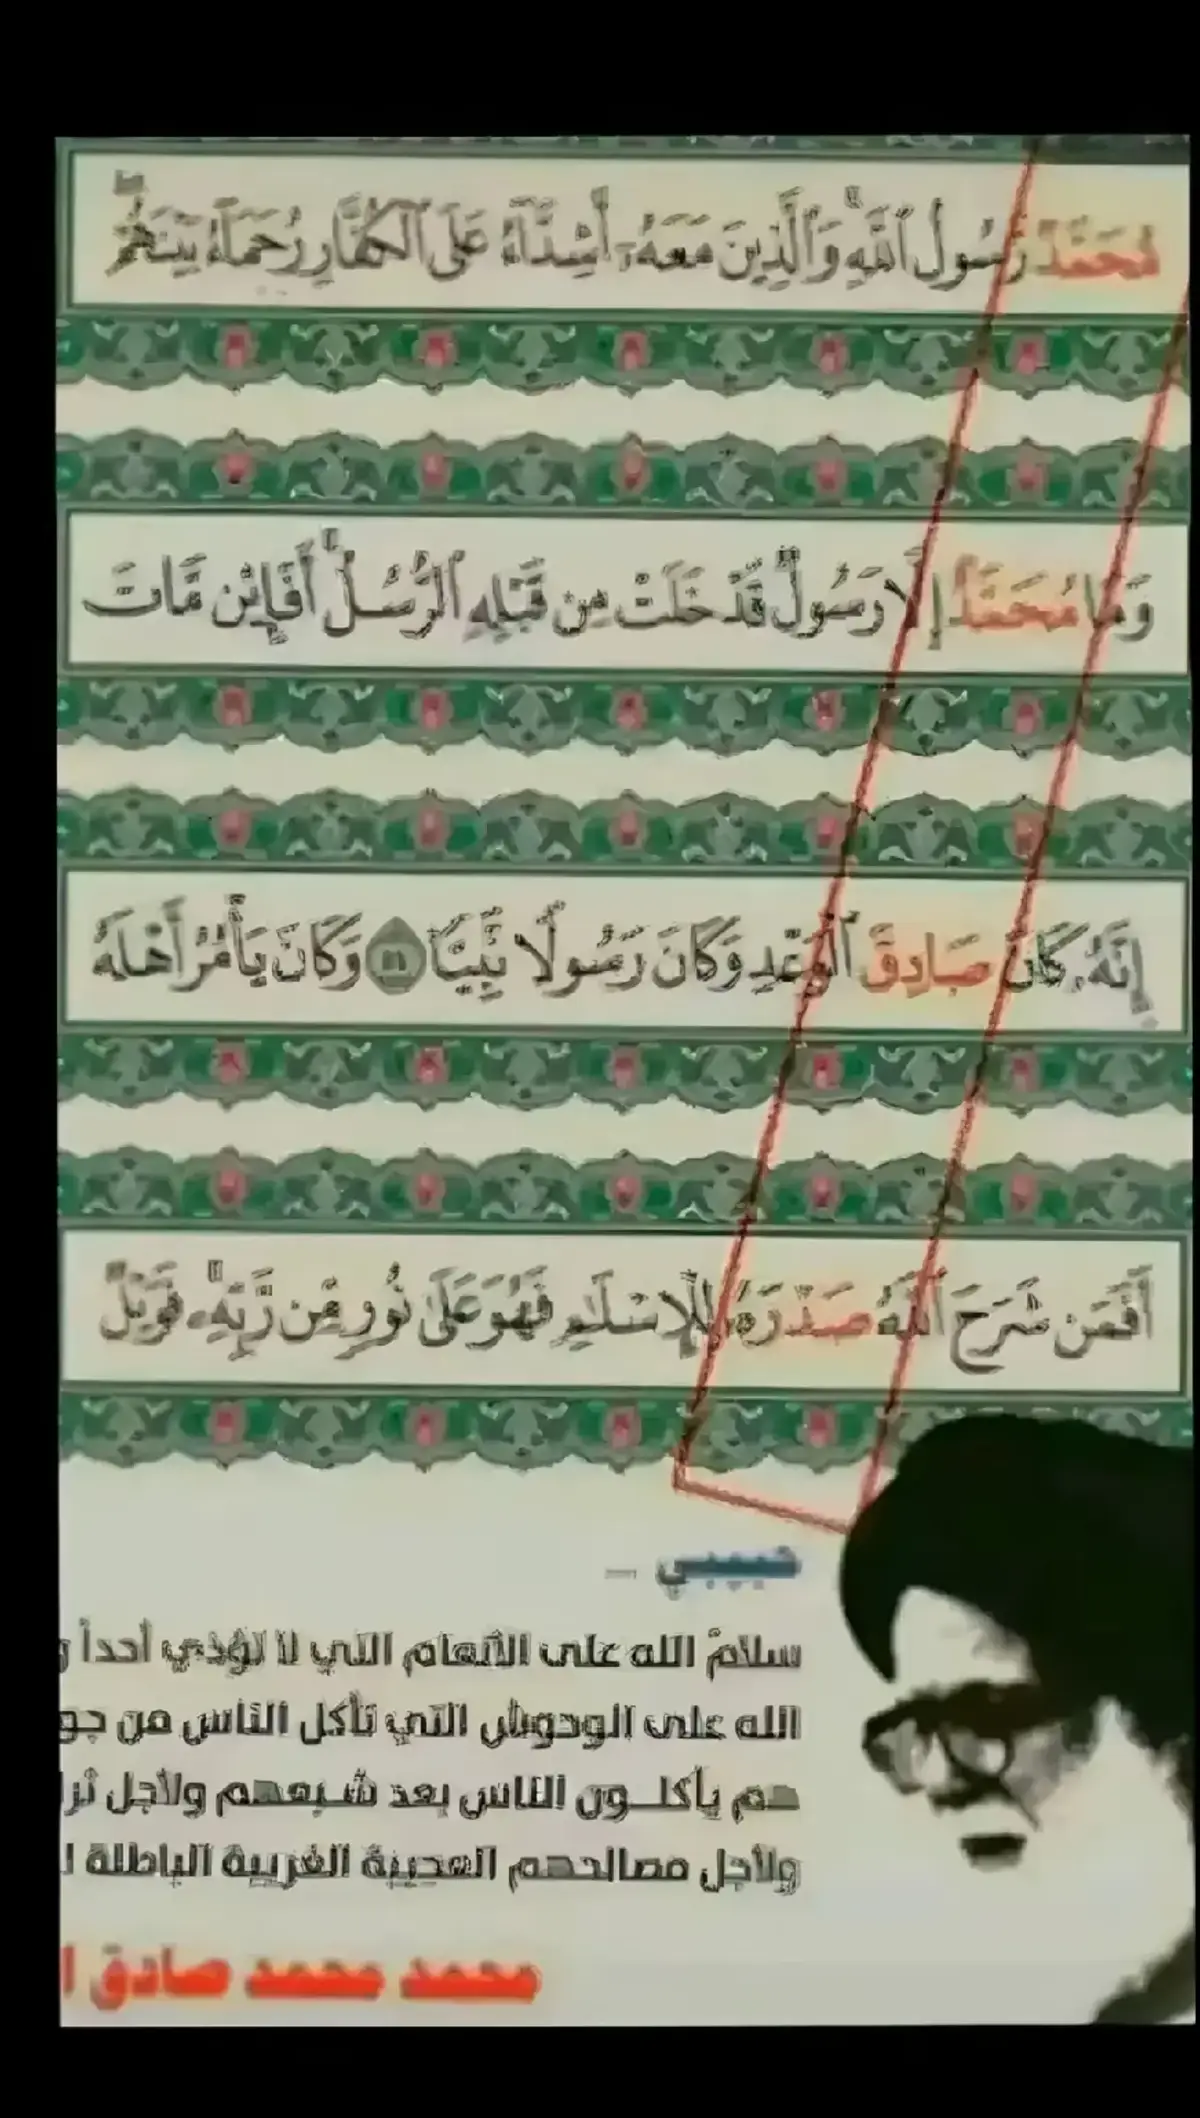 مُحَمَّدٌ رَّسُولُ ٱللَّهِ ۚ وَٱلَّذِينَ مَعَهُۥٓ أَشِدَّآءُ عَلَى ٱلْكُفَّارِ رُحَمَآءُ بَيْنَهُمْ ۖ
وَمَا مُحَمَّدٌ إِلَّا رَسُولٌ قَدْ خَلَتْ مِن قَبْلِهِ ٱلرُّسُلُ ۚ أَفَإِي۟ن مَّاتَ
إِنَّهُۥ كَانَ صَادِقَ ٱلْوَعْدِ وَكَانَ رَسُولًا نَّبِيًّا وَكَانَ يَأْمُرُ أَهْلَهُ
أَفَمَن شَرَحَ ٱللَّهُ صَدْرَهُۥ لِلْإِسْلَٰمِ فَهُوَ عَلَىٰ نُورٍ مِّن رَّبِّهِۦ ۚ فَوَيْلٌ
حبيبي
سلامٌ الله على الأنعام التي لا تؤذي أحداً و
الله على الوحوش التي تأكل الناس من جو
هم يأكلـــون الناس بعد شبعهم ولأجل
ولأجل مصالحهم العجيبة الغريبة الباطلة
محمد محمد صادق ا